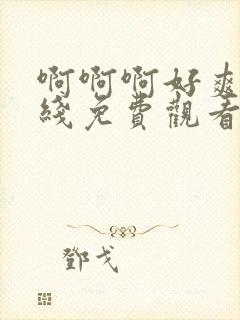 啊啊啊好爽
綫免費觀看
鄧戈